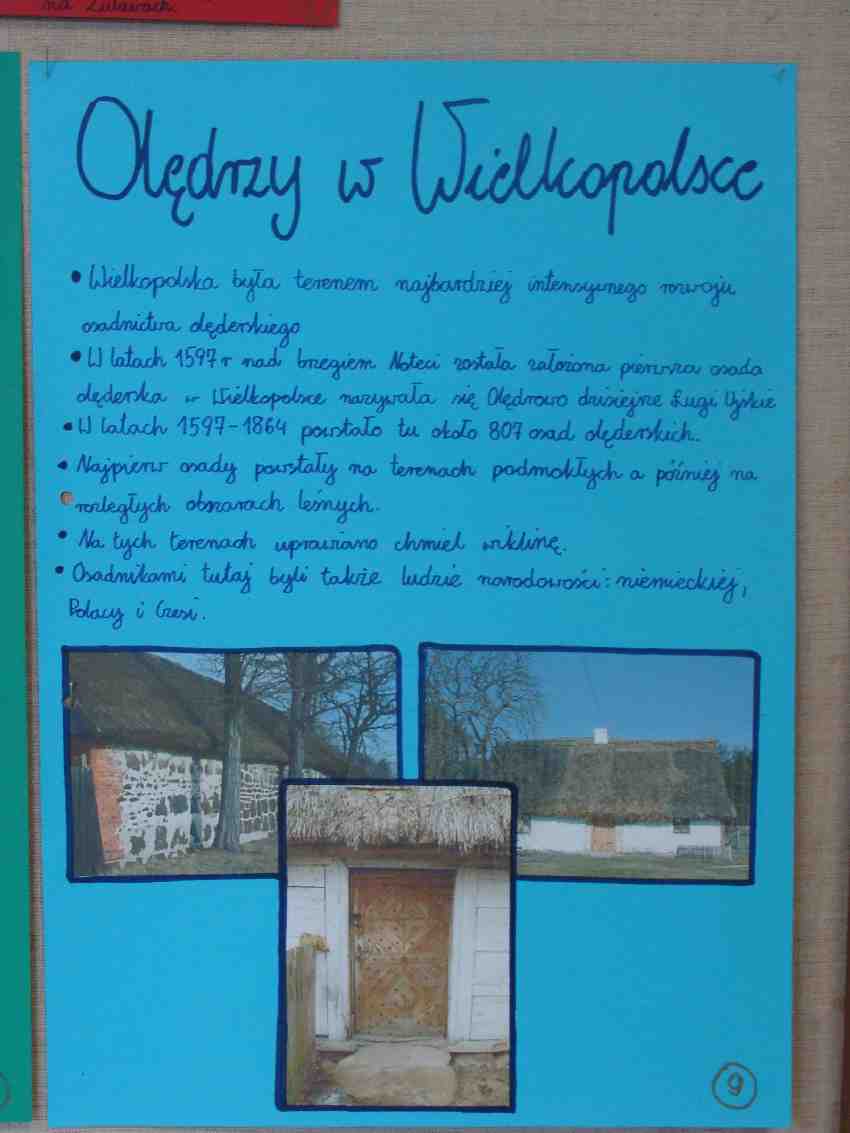 na Żuławach.
Olędrzy w Wielkopolsce
• Wielkopolska była terenem najbardziej intensywnego rozwoju
osadnictwa olęderskiego
• W latach 1597 r nad brzegiem Noteci została założona pierwsza osada
olęderska w Wielkopolsce nazywała się Olędrowo dzisiejsze Ługi Ujskie
• W latach 1597-1864 powstało tu około 807 osad olęderskich.
• Najpierw osady powstały na terenach podmokłych a później na
rozległych obszarach leśnych.
• Na tych terenach uprawiano chmiel wiklinę.
• Osadnikami tutaj byli także ludzie narodowości: niemieckiej,
Polacy i Czesi.
9